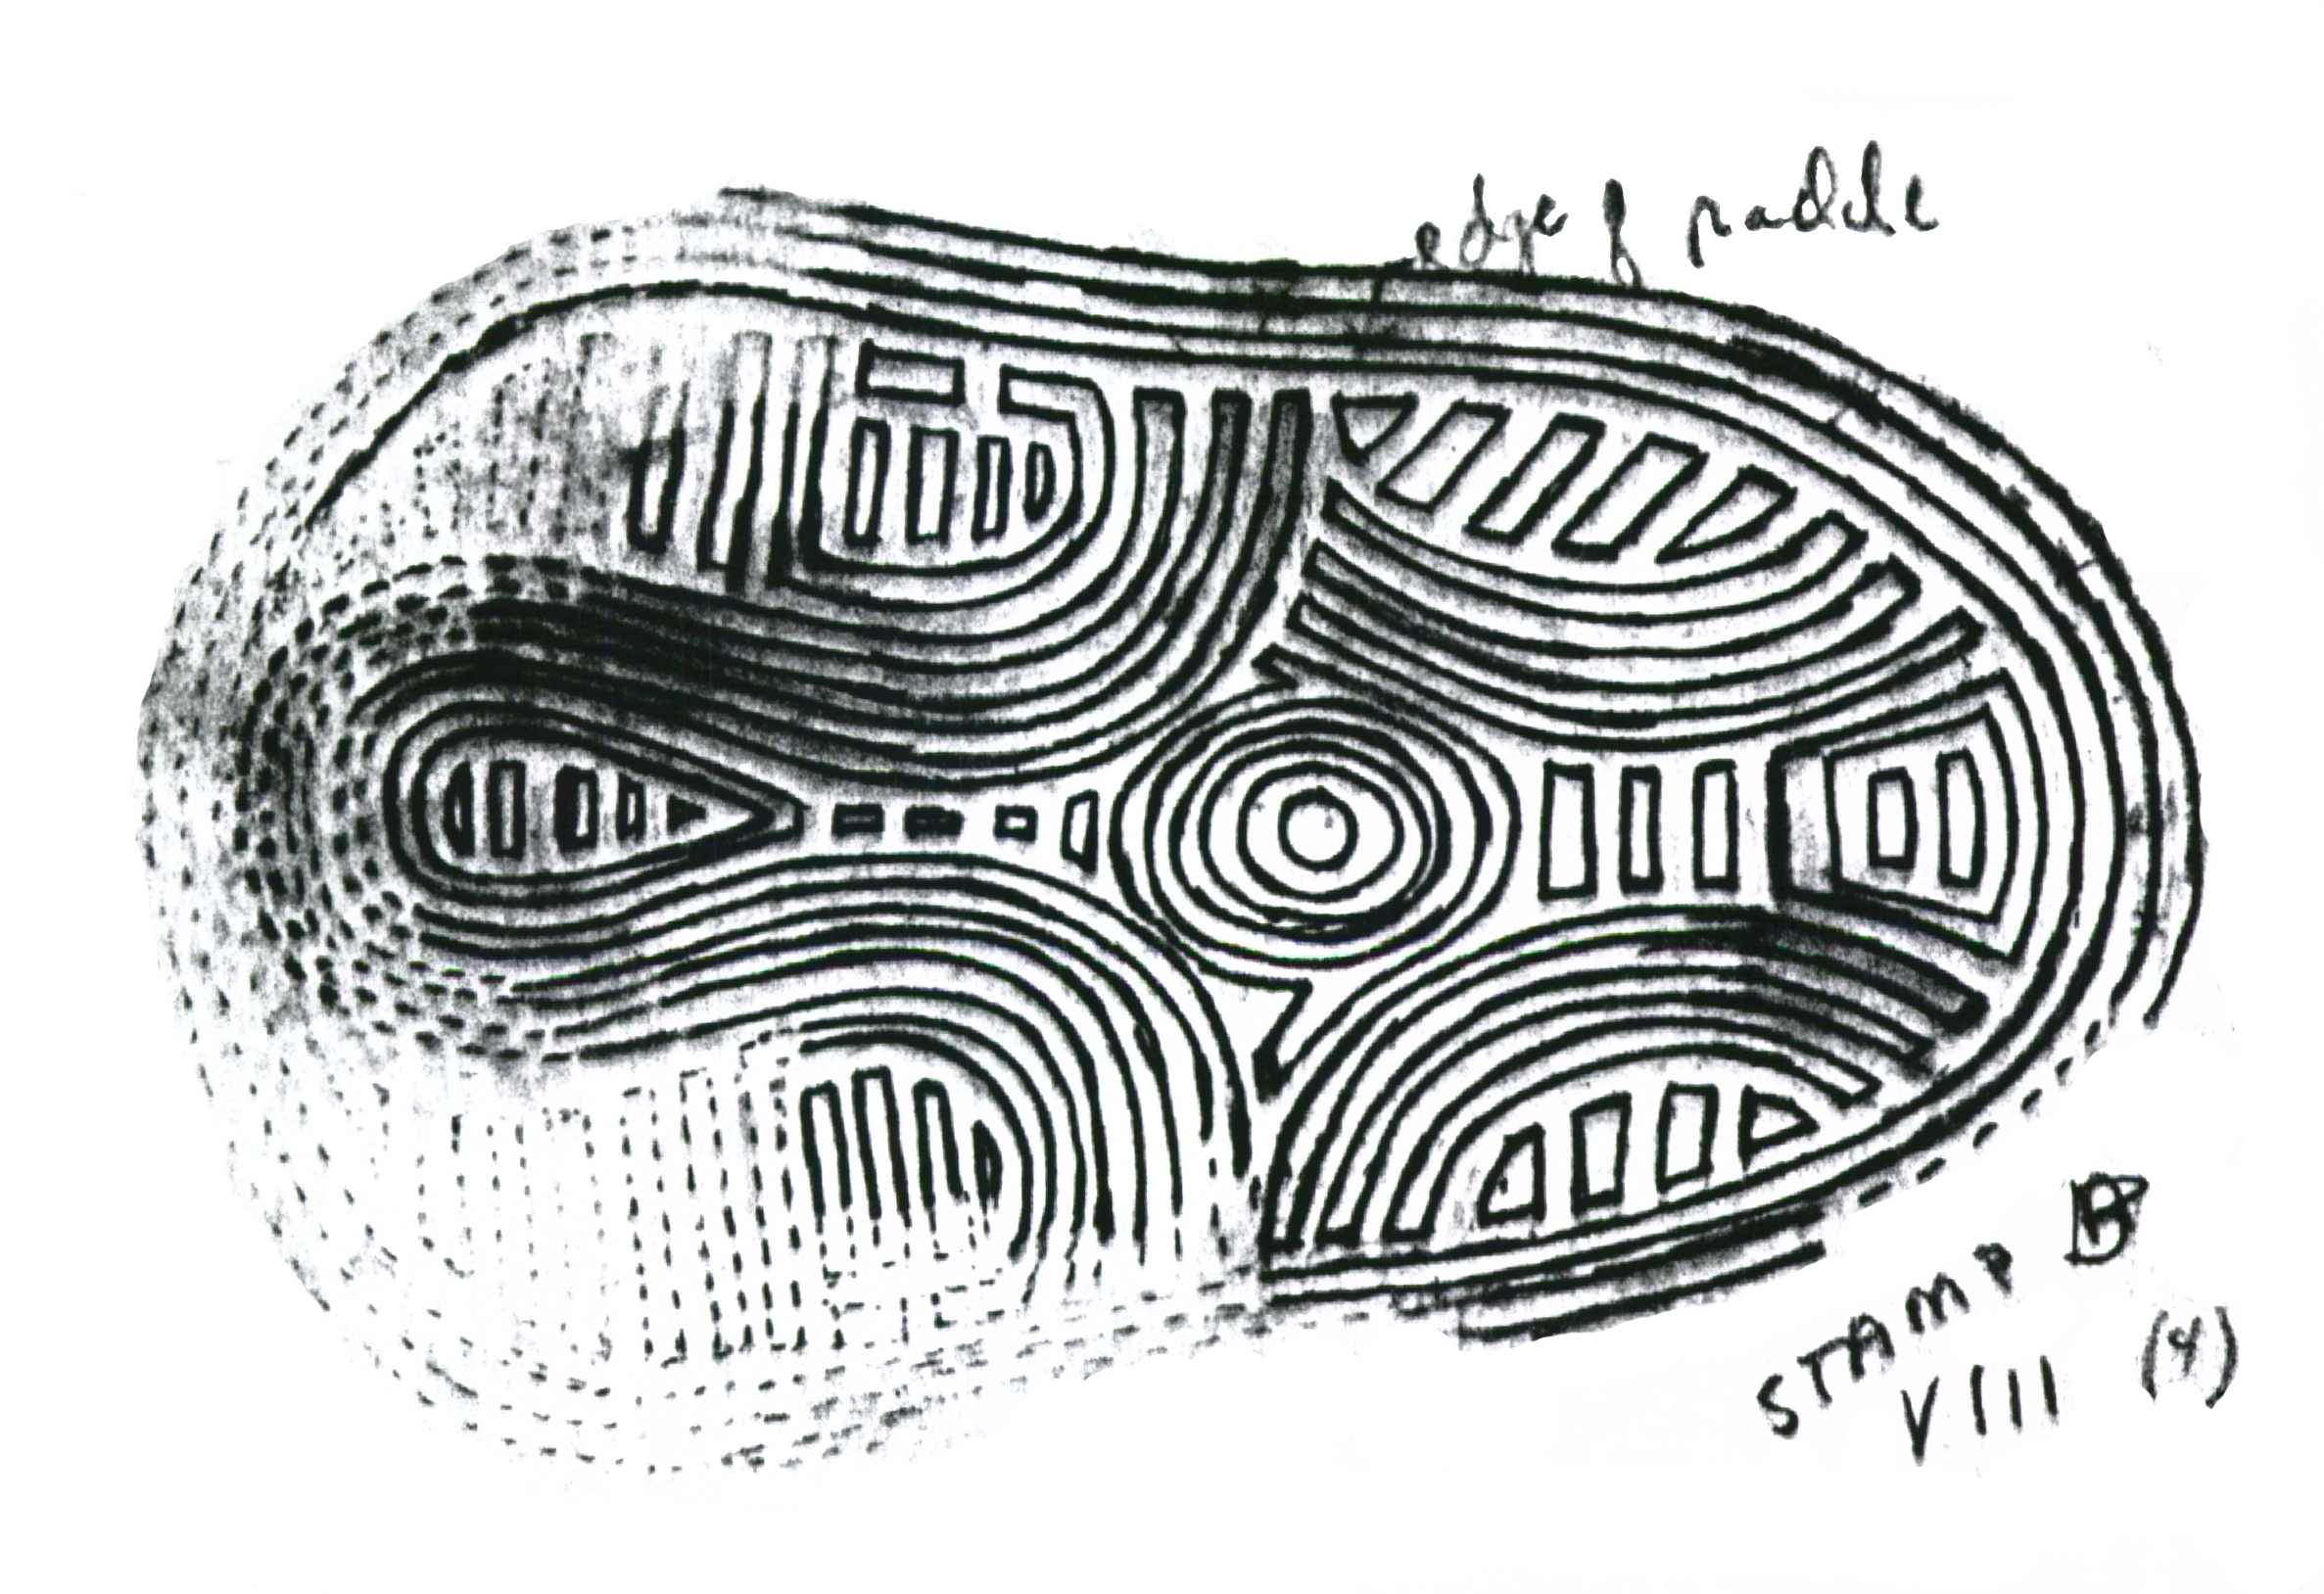 edge of paddle
STAMP B
VIII (4)